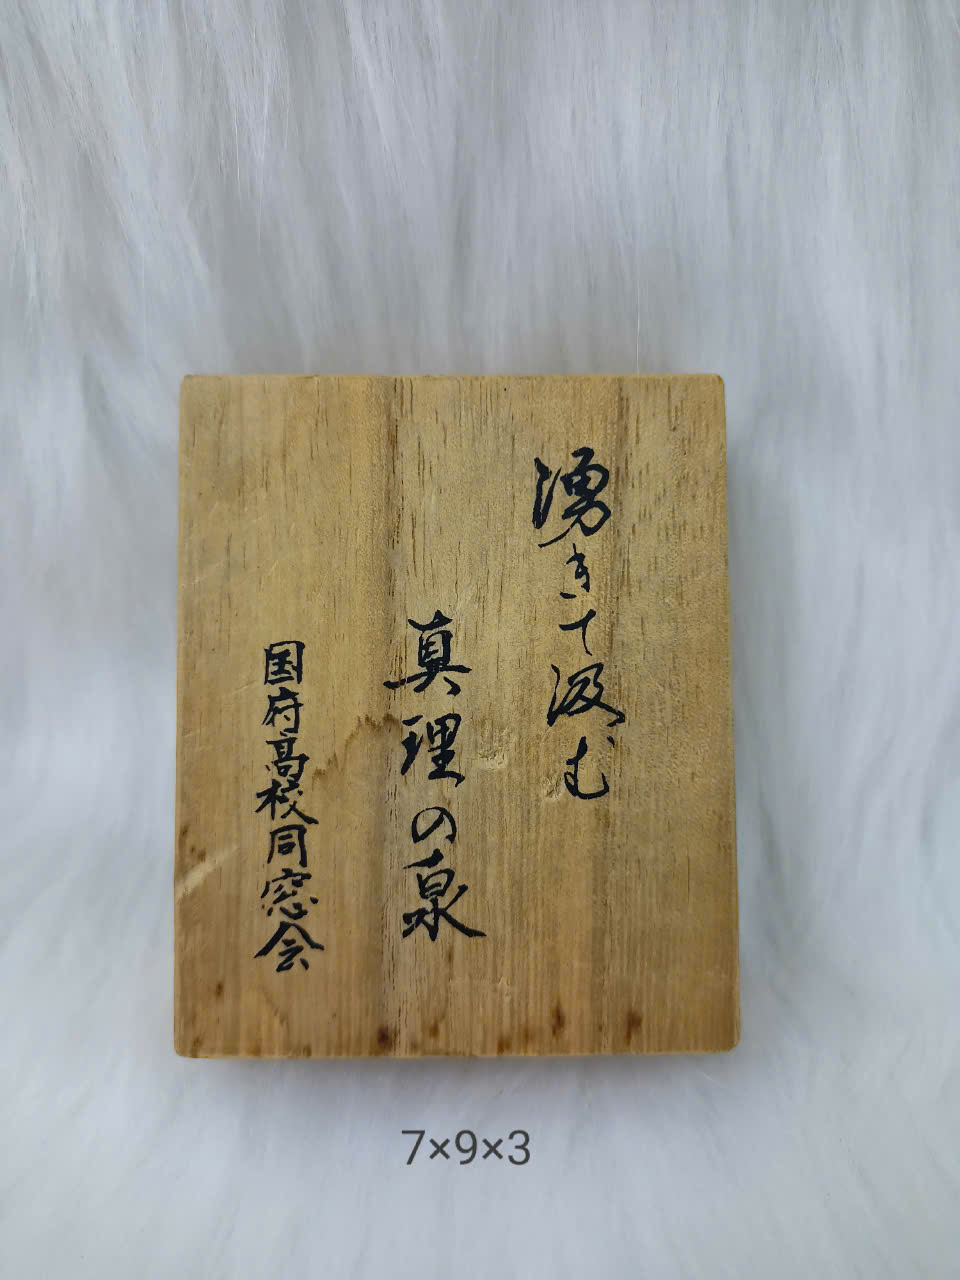 湧きて汲む
真理の泉
国府高校同窓会
7×9×3